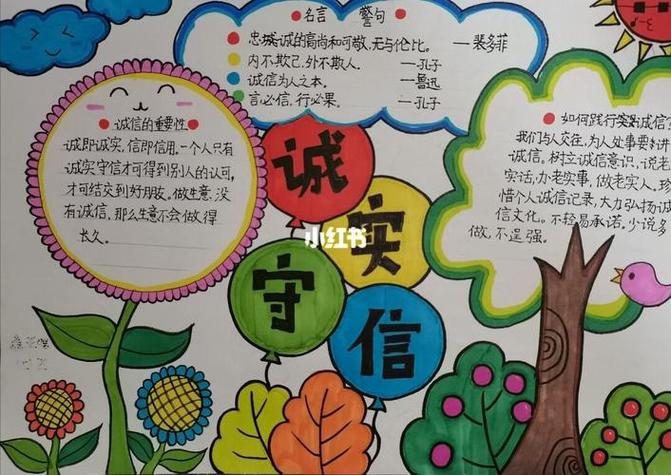 名言 警句
忠诚，诚的高尚和可敬，无与伦比。 —裴多菲
内不欺己，外不欺人。 —孔子
诚信为人之本。 —鲁迅
言必信，行必果。 —孔子
诚信的重要性
诚即诚实，信即信用。一个人只有
诚实守信才可得到别人的认可，
才可结交到好朋友。做生意，没
有诚信，那么生意不会做得
长久。
诚
实
守
信
小红书
如何践行诚信？
我们与人交往，为人处事要讲
诚信。树立诚信意识，说老
实话，办老实事，做老实人。珍
惜个人诚信记录，大力弘扬诚
信文化。不轻易承诺。少说多
做，不逞强。